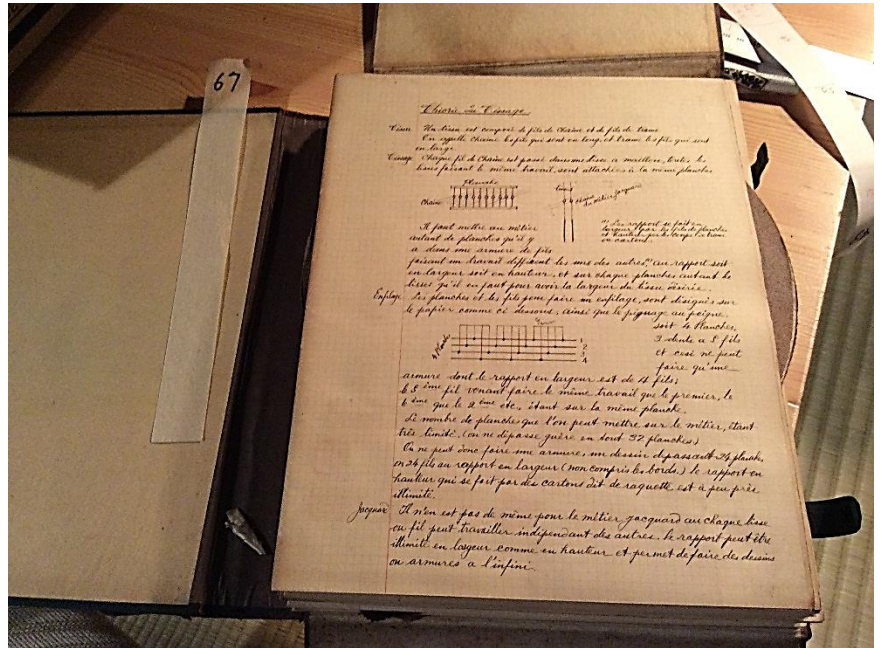 67
Théorie du Tissage
Tissu Un tissu est composé de fils de chaîne et de fils de trame
On appelle chaîne les fils qui sont en long, et trame les fils qui sont
en large
Tissage Chaque fil de chaîne est passé dans une lisse à maillon, toutes les
lisses faisant le même travail, sont attachées à la même planche
Planche
Chaîne
lisses
du métier Jacquard
Il faut mettre au métier
autant de planches qu'il y
a dans une armure de fils
(1) Le rapport se fait en
largeur par les fils de planches
et hauteur par les coups de trame
ou cartons.
faisant un travail différent les uns des autres, (1) au rapport soit
en largeur soit en hauteur, et sur chaque planches autant de
lisses qu'il en faut pour avoir la largeur du tissu désirée.
Enfilage Les planches et les fils pour faire un enfilage, sont désignés sur
le papier comme ci dessous, ainsi que le piquage au peigne.
4 Planches
1
2
3
4
soit 4 Planches,
3 dents a 5 fils
et ceci ne peut
faire qu'une
armure dont le rapport en largeur est de 4 fils;
le 5 ème fil venant faire le même travail que le premier, le
6 ème que le 2 ème etc, étant sur la même planche.
Le nombre de planches que l'on peut mettre sur le métier, étant
très limité. (on ne dépasse guère en tout 32 planches)
On ne peut donc faire une armure, un dessin dépassant 24 planches
ou 24 fils au rapport en largeur (non compris les bords.) le rapport en
hauteur qui se fait par des cartons dit de raquette est à peu près
illimité.
Jacquard Il n'en est pas de même pour le métier jacquard ou chaque lisse
ou fil peut travailler indépendant des autres. le rapport peut être
illimité en largeur comme en hauteur et permet de faire des dessins
ou armures a l'infini.